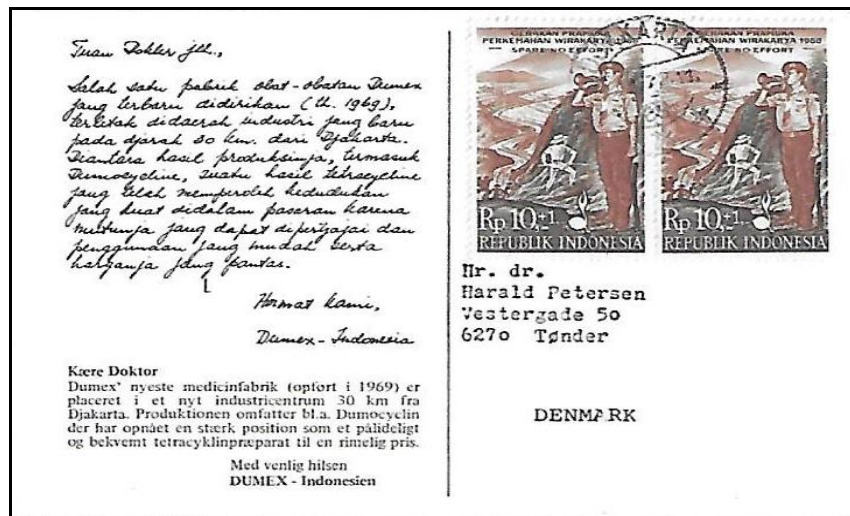 Tuan Dokter jth.,
Salah satu pabrik obat-obatan Dumex
jang terbaru didirikan (th. 1969),
terletak didaerah industri jang baru
pada djarak 30 km. dari Djakarta.
Diantara hasil produksinja, termasuk
Dumocycline, suatu hasil tetracycline
jang telah memperoleh kedudukan
jang kuat didalam pasaran karena
mutunja jang dapat dipertjajai dan
penggunaan jang mudah serta
harganja jang pantas.
Hormat kami,
Dumex - Indonesia
Kære Doktor
Dumex' nyeste medicinfabrik (opført i 1969) er
placeret i et nyt industricentrum 30 km fra
Djakarta. Produktionen omfatter bl.a. Dumocyclin
der har opnået en stærk position som et pålideligt
og bekvemt tetracyklinpræparat til en rimelig pris.
Med venlig hilsen
DUMEX - Indonesien
GERAKAN PRAMUKA
PERKEMAHAN WIRAKARYA
SPARE NO EFFORT
Rp 10,+1.
REPUBLIK INDONESIA
GERAKAN PRAMUKA
PERKEMAHAN WIRAKARYA 1968
SPARE NO EFFORT
Rp 10,+1.
REPUBLIK INDONESIA
Hr. dr.
Harald Petersen
Vestergade 50
6270 Tønder
DENMARK